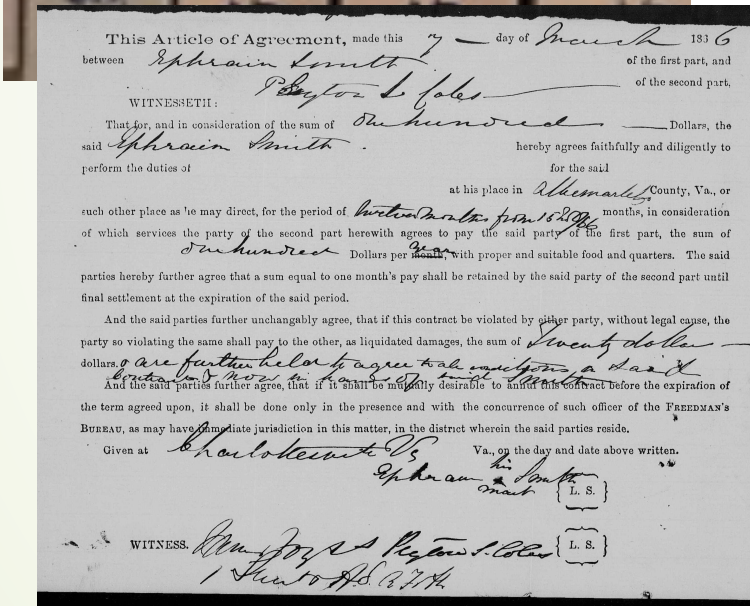 This Article of Agreement, made this 7 — day of March 1866
between Ephraim Smith of the first part, and
Peyton S. Coles of the second part,
WITNESSETH:
That for, and in consideration of the sum of One hundred Dollars, the
said Ephraim Smith. hereby agrees faithfully and diligently to
perform the duties of for the said
at his place in Albemarle County, Va., or
such other place as he may direct, for the period of twelve months from months, in consideration
of which services the party of the second part herewith agrees to pay the said party of the first part, the sum of
One hundred Dollars per month, year with proper and suitable food and quarters. The said
parties hereby further agree that a sum equal to one month's pay shall be retained by the said party of the second part until
final settlement at the expiration of the said period.
And the said parties further unchangably agree, that if this contract be violated by either party, without legal cause, the
party so violating the same shall pay to the other, as liquidated damages, the sum of Twenty dollars
dollars. & are further held to agree to all conditions
contract now in hands of said Smith
And the said parties further agree, that if it shall be mutually desirable to annul this contract before the expiration of
the term agreed upon, it shall be done only in the presence and with the concurrence of such officer of the FREEDMAN'S
BUREAU, as may have immediate jurisdiction in this matter, in the district wherein the said parties reside.
Given at Charlottesville Va Va., on the day and date above written.
Ephraim his x mark Smith { L. S. }
WITNESS. Peyton S. Coles { L. S. }